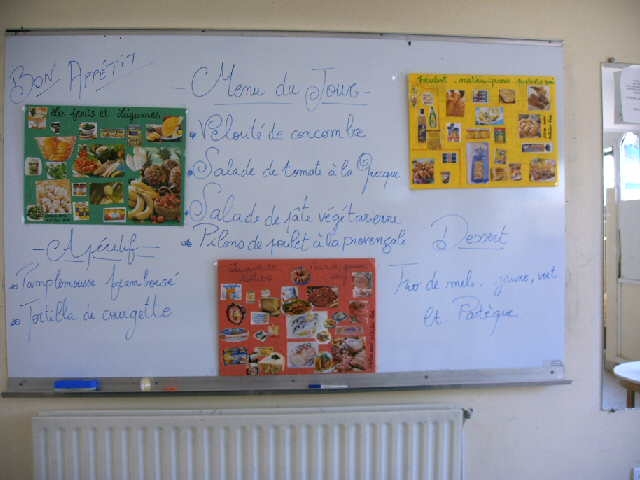 BON APPÉTIT
- Menu du Jour -
Les fruits et Légumes
Velouté de concombre
Salade de tomate à la Grecque
Salade de pâte végétarienne
Pilons de poulet à la provençale
- Apéritif -
Pamplemousse framboisé
Tortilla de courgette
Dessert
Trio de melon jaune, vert
et Pastèque